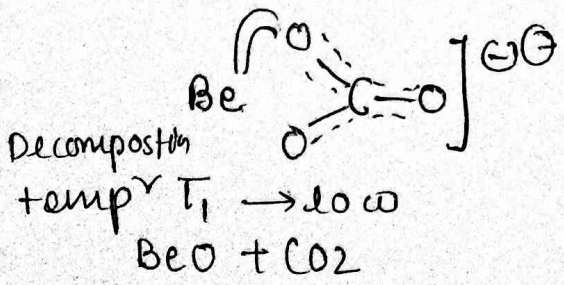 O
Be C O ] ⊖⊖
O
Decompostin
tempr T1 → low
BeO + CO2